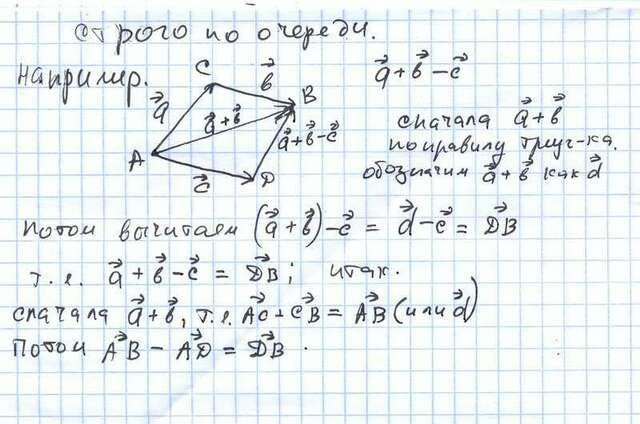 строго по очереди.
Например.
C
b⃗
a⃗ + b⃗ − c⃗
a⃗
B
a⃗+b⃗
a⃗+b⃗−c⃗
A
c⃗
D
сначала a⃗+b⃗
по правилу треуг-ка.
обозначим a⃗+b⃗ как d⃗
Потом вычитаем (a⃗+b⃗)−c⃗ = d⃗−c⃗ = D⃗B
т.е. a⃗+b⃗−c⃗ = D⃗B; итак.
сначала a⃗+b⃗, т.е. A⃗C+C⃗B = A⃗B (или d⃗)
Потом A⃗B − A⃗D = D⃗B.